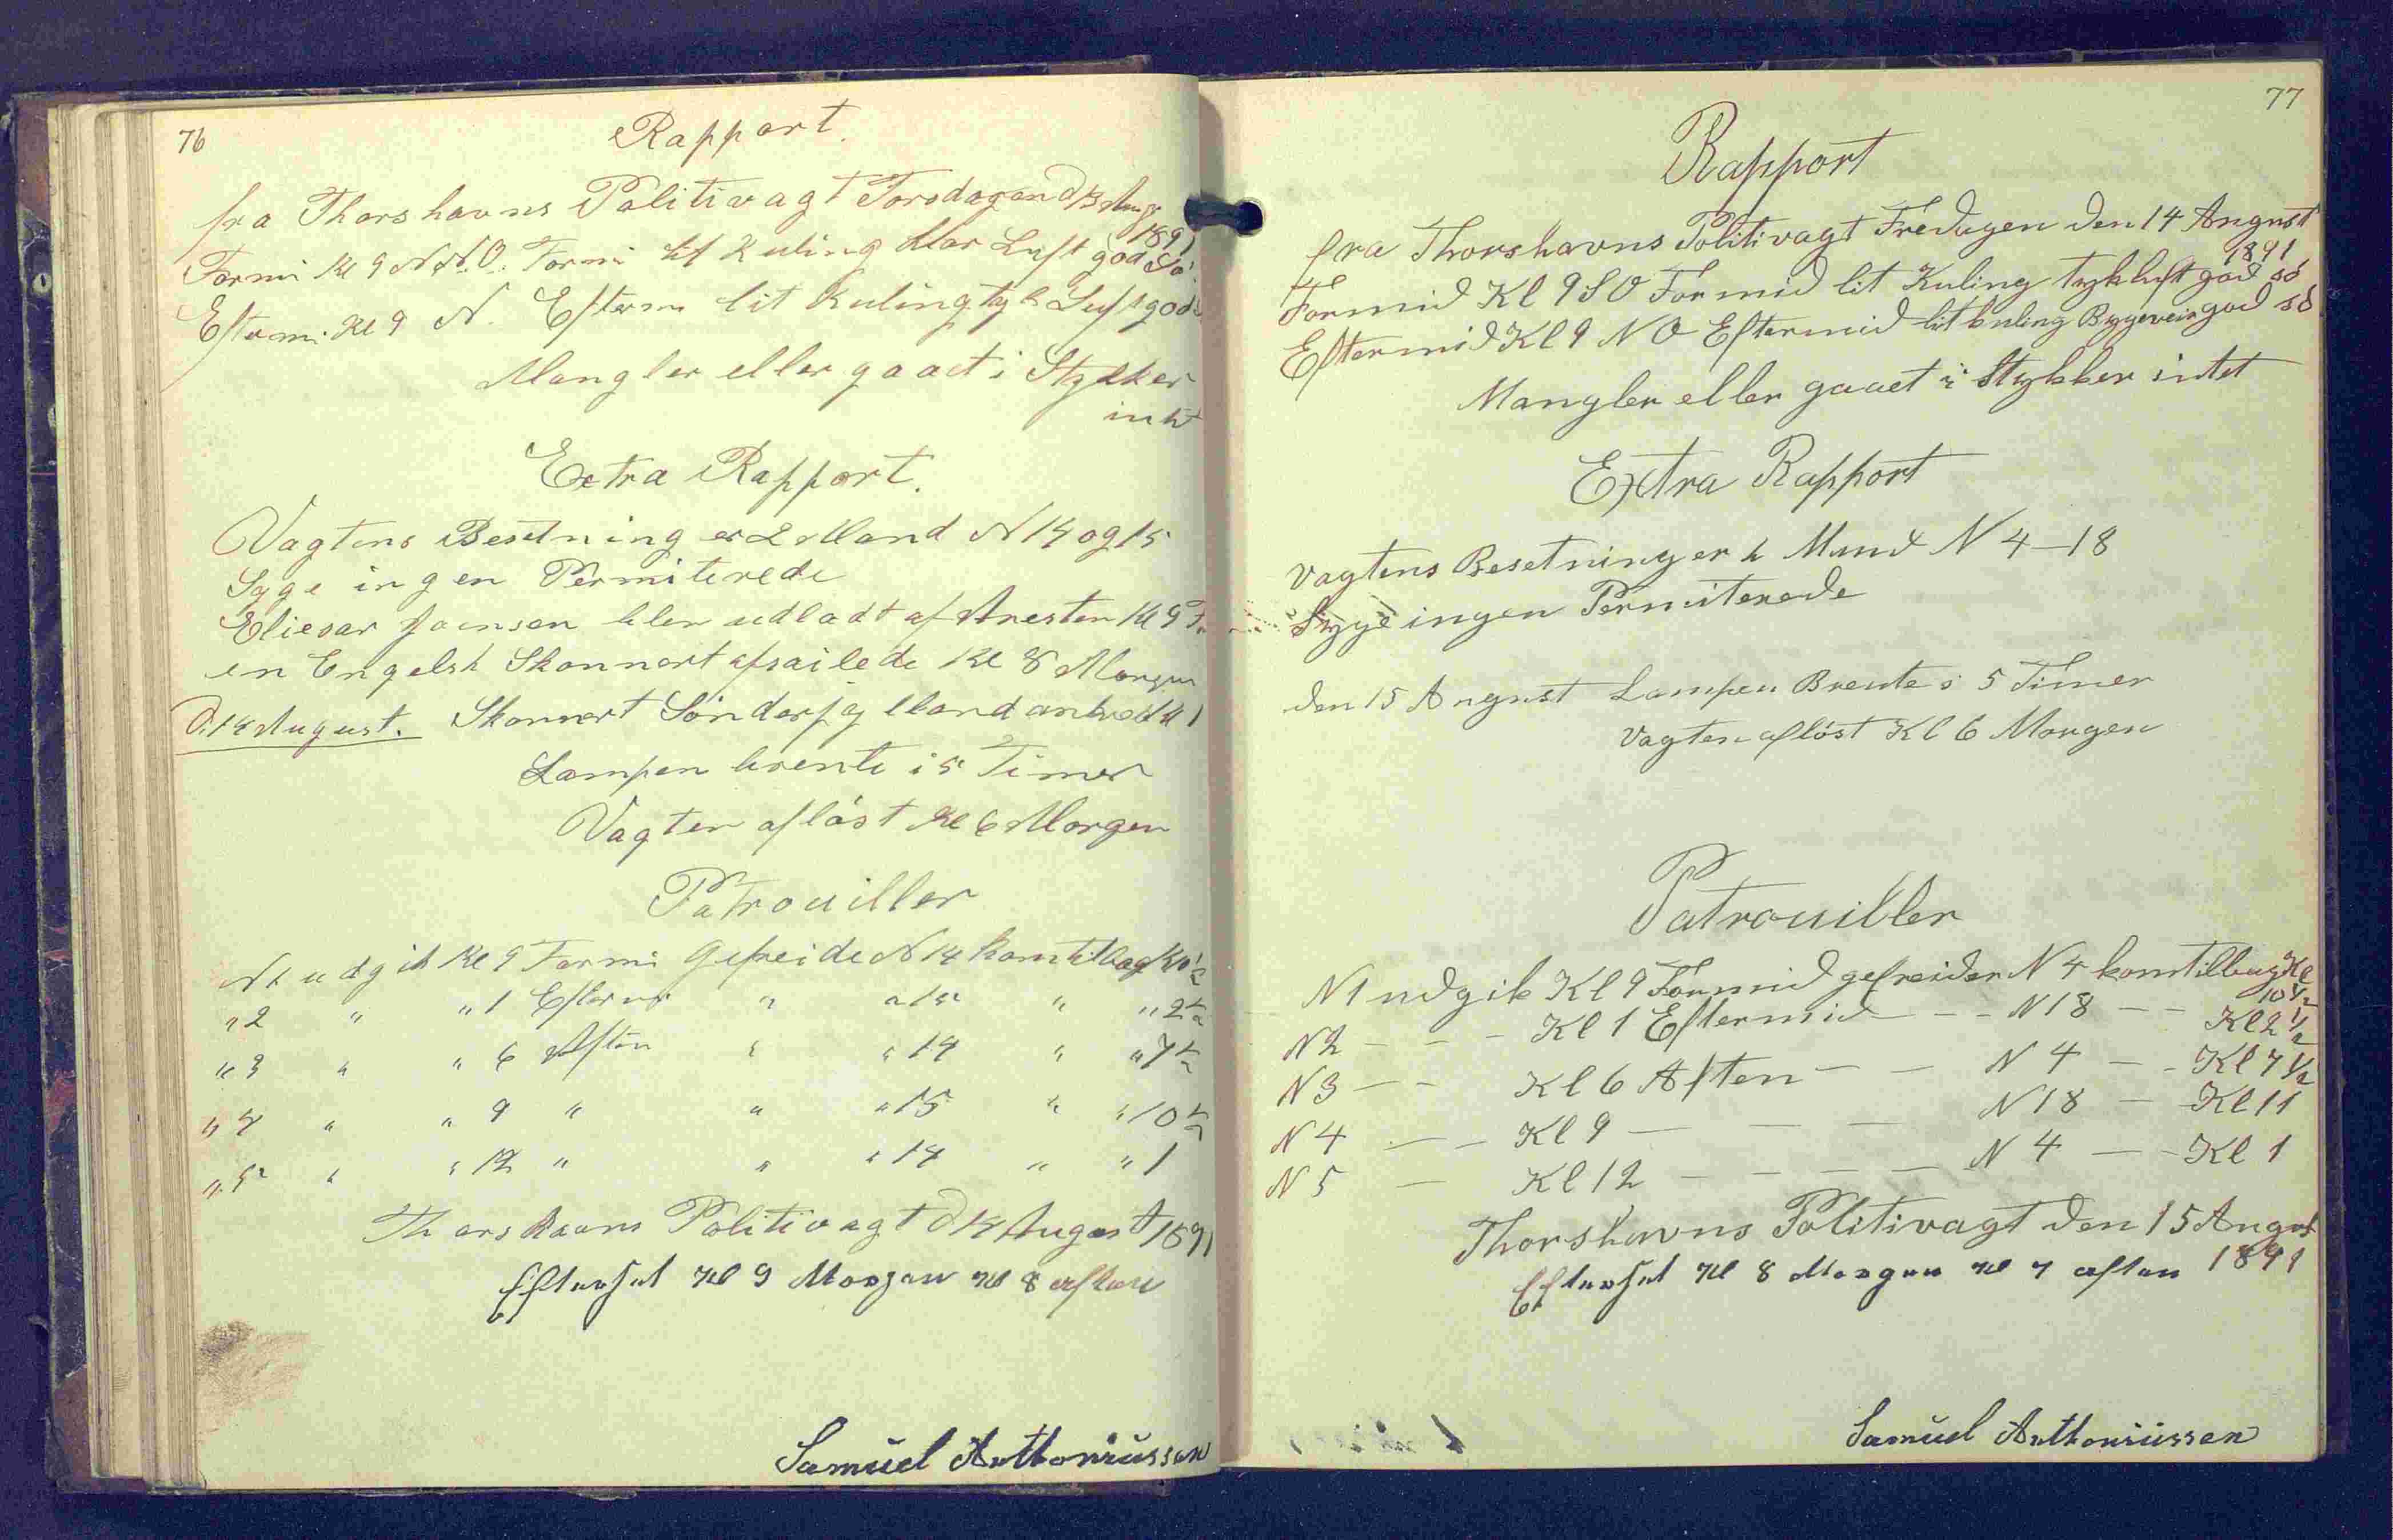 76
Rapport.
fra Thorshavns Politivagt Torsdagen d 13 Aug
1891
Formi Kl 9 N.N.O. Formi lit Kuling klar Luft god Sö.
Efterm. Kl 9 N. Efterm lit Kuling tyk Luft god
Mangler eller gaaet i Stykker
intet
Extra Rapport.
Vagtens Besetning er 2 Mand N 14 og 15
Syge ingen Permiterede
Eliesar Joensen blev udladt af Aresten Kl 9 F
en Engelsk Skonnert afsailede Kl 8 Morgen
D. 14 August. Skonnert Sönderjylland ankred Kl 1
Lampen brente i 5 Timer
Vagten aflöst Kl 6 Morgen
Patrouiller
N 1 udgik Kl 9 Formi Gefreide N 14 kom tilbag 10 1/2
" 2 " " 1 Efterm " " 15 " " 2 1/2
" 3 " " 6 Aften " " 14 " " 7 1/2
" 4 " " 9 " " " 15 " " 10 1/2
" 5 " " 12 " " " 14 " " 1
Thorshavns Politivagt d 14 August 1891
Efterset Kl 9 Morgen Kl 8 aften
Samuel Anthoniussen
77
Rapport
fra Thorshavns Politivagt Fredagen den 14 August
1891
Formid Kl 9 S O Formid lit Kuling tykluft god sö
Eftermid Kl 9 N O Eftermid lit kuling Bygeveir god sö
Mangler eller gaaet i Stykker intet
Extra Rapport
Vagtens Besetning er 2 Mand N 4 – 18
Syge ingen Permiterede
den 15 August Lampen Brente i 5 Timer
Vagten aflöst Kl 6 Morgen
Patrouiller
N 1 udgik Kl 9 Formid gefreider N 4 kom tilbag Kl
10 1/2
N 2 – – – Kl 1 Eftermid – – N 18 – – Kl 2 1/2
N 3 – – Kl 6 Aften – – N 4 – – Kl 7 1/2
N 4 – – Kl 9 – – – N 18 – Kl 11
N 5 – Kl 12 – – – – N 4 – – Kl 1
Thorshavns Politivagt den 15 August
1891
Efterset Kl 8 Morgen Kl 7 aften
Samuel Anthoniussen